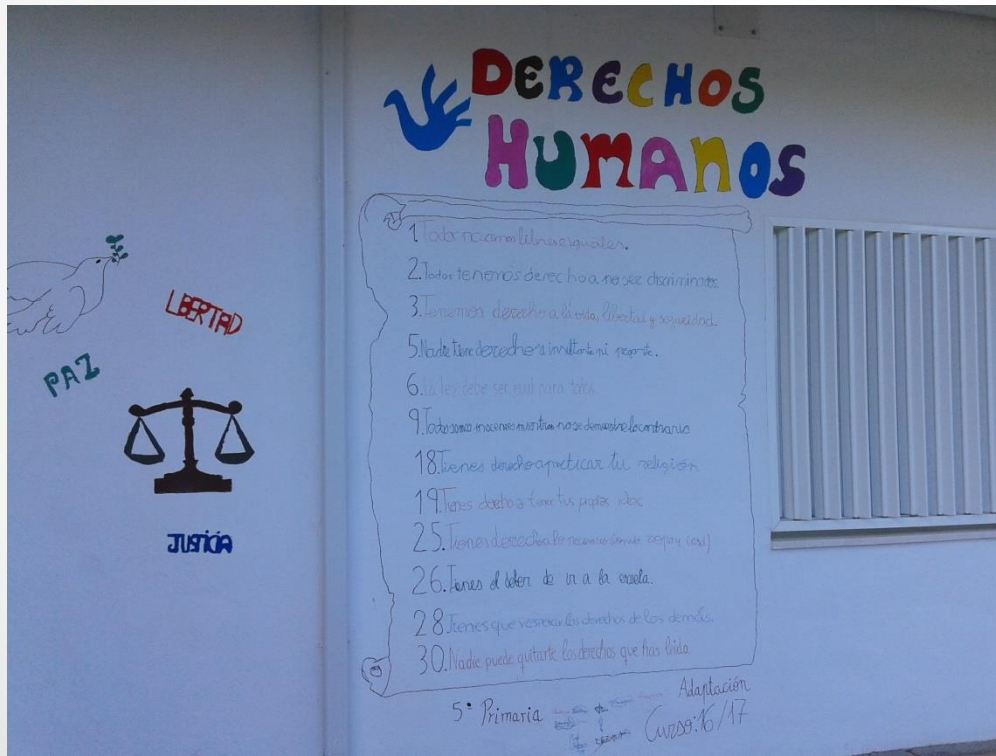 DERECHOS
HUMANOS
1. Todos nacemos libres e iguales.
2. Todos tenemos derecho a no ser discriminados
3. Tenemos derecho a la vida, libertad y seguridad.
5. Nadie tiene derecho a insultarte ni pegarte.
6. La ley debe ser igual para todos
9. Todos somos inocentes mientras no se demuestre lo contrario
18. Tienes derecho a practicar tu religión
19. Tienes derecho a tener tus propias ideas
25. Tienes derecho a lo necesario (comida ropa y casa)
26. Tienes el deber de ir a la escuela.
28. Tienes que respetar los derechos de los demás.
30. Nadie puede quitarte los derechos que has leído.
5º Primaria
Adaptación
Curso: 16/17
LIBERTAD
PAZ
JUSTICIA